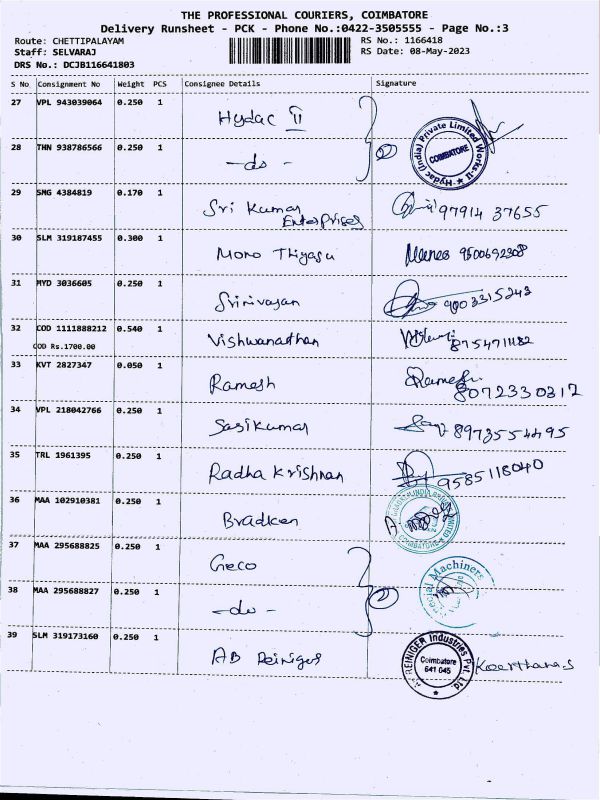 THE PROFESSIONAL COURIERS, COIMBATORE
Delivery Runsheet - PCK - Phone No.:0422-3505555 - Page No.:3
Route: CHETTIPALAYAM RS No.: 1166418
Staff: SELVARAJ RS Date: 08-May-2023
DRS No.: DCJB116641803
S No Consignment No Weight PCS Consignee Details Signature
27 VPL 943039064 0.250 1 Hydac II
Hydac (India) Private Limited Works-II ★ COIMBATORE
28 THN 938786566 0.250 1 -do- 2
29 SMG 4384819 0.170 1 Sri Kumar Enterprises 97914 37655
30 SLM 319187455 0.300 1 Mono Thiyagu 9500692308
31 MYD 3036605 0.250 1 Srinivasan 9003315243
32 COD 1111888212 0.540 1 Vishwanathan 8754711182
COD Rs.1700.00
33 KVT 2827347 0.050 1 Ramesh Ramesh
8072330317
34 VPL 218042766 0.250 1 Sasikumar 8973554495
35 TRL 1961395 0.250 1 Radha Krishnan 9585118040
36 MAA 102910381 0.250 1 Bradken
COIMBATORE
37 MAA 295688825 0.250 1 Geco
38 MAA 295688827 0.250 1 -do- 2
Special Machines
39 SLM 319173160 0.250 1 AB Reiniger
REINIGER Industries Pvt. Ltd. ★ Coimbatore 641 045
Keerthana.S